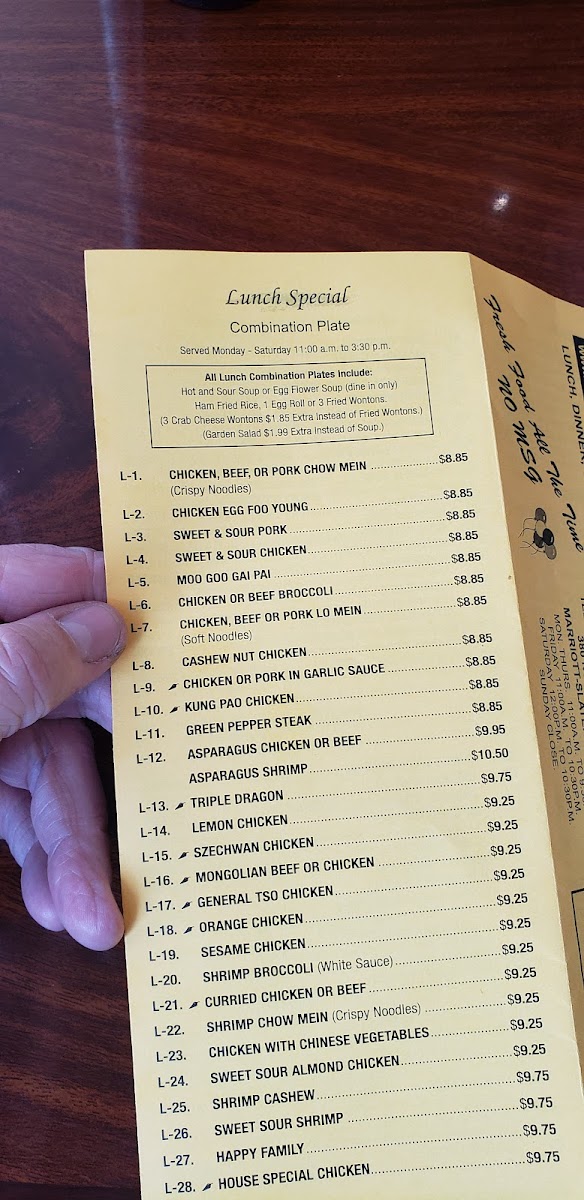 Lunch Special
Combination Plate
Served Monday - Saturday 11:00 a.m. to 3:30 p.m.
All Lunch Combination Plates Include:
Hot and Sour Soup or Egg Flower Soup (dine in only)
Ham Fried Rice, 1 Egg Roll or 3 Fried Wontons.
(3 Crab Cheese Wontons $1.85 Extra Instead of Fried Wontons.)
(Garden Salad $1.99 Extra Instead of Soup.)
L-1. CHICKEN, BEEF, OR PORK CHOW MEIN ....................$8.85
(Crispy Noodles)
L-2. CHICKEN EGG FOO YOUNG....................$8.85
L-3. SWEET & SOUR PORK....................$8.85
L-4. SWEET & SOUR CHICKEN....................$8.85
L-5. MOO GOO GAI PAI ....................$8.85
L-6. CHICKEN OR BEEF BROCCOLI....................$8.85
L-7. CHICKEN, BEEF OR PORK LO MEIN ....................$8.85
(Soft Noodles)
L-8. CASHEW NUT CHICKEN....................$8.85
L-9. CHICKEN OR PORK IN GARLIC SAUCE ....................$8.85
L-10. KUNG PAO CHICKEN....................$8.85
L-11. GREEN PEPPER STEAK ....................$8.85
L-12. ASPARAGUS CHICKEN OR BEEF ....................$9.95
ASPARAGUS SHRIMP....................$10.50
L-13. TRIPLE DRAGON ....................$9.75
L-14. LEMON CHICKEN....................$9.25
L-15. SZECHWAN CHICKEN ....................$9.25
L-16. MONGOLIAN BEEF OR CHICKEN ....................$9.25
L-17. GENERAL TSO CHICKEN....................$9.25
L-18. ORANGE CHICKEN....................$9.25
L-19. SESAME CHICKEN....................$9.25
L-20. SHRIMP BROCCOLI (White Sauce)....................$9.25
L-21. CURRIED CHICKEN OR BEEF....................$9.25
L-22. SHRIMP CHOW MEIN (Crispy Noodles) ....................$9.25
L-23. CHICKEN WITH CHINESE VEGETABLES....................$9.25
L-24. SWEET SOUR ALMOND CHICKEN....................$9.25
L-25. SHRIMP CASHEW....................$9.75
L-26. SWEET SOUR SHRIMP ....................$9.75
L-27. HAPPY FAMILY....................$9.75
L-28. HOUSE SPECIAL CHICKEN....................$9.75
Fresh Food All The Time
NO MSG
LUNCH, DINNER
MON. THURS. 11:00A.M. TO
FRIDAY 11:00A.M. TO 10:30P.M.
SATURDAY 12:00P.M. TO 10:30P.M.
SUNDAY CLOSE